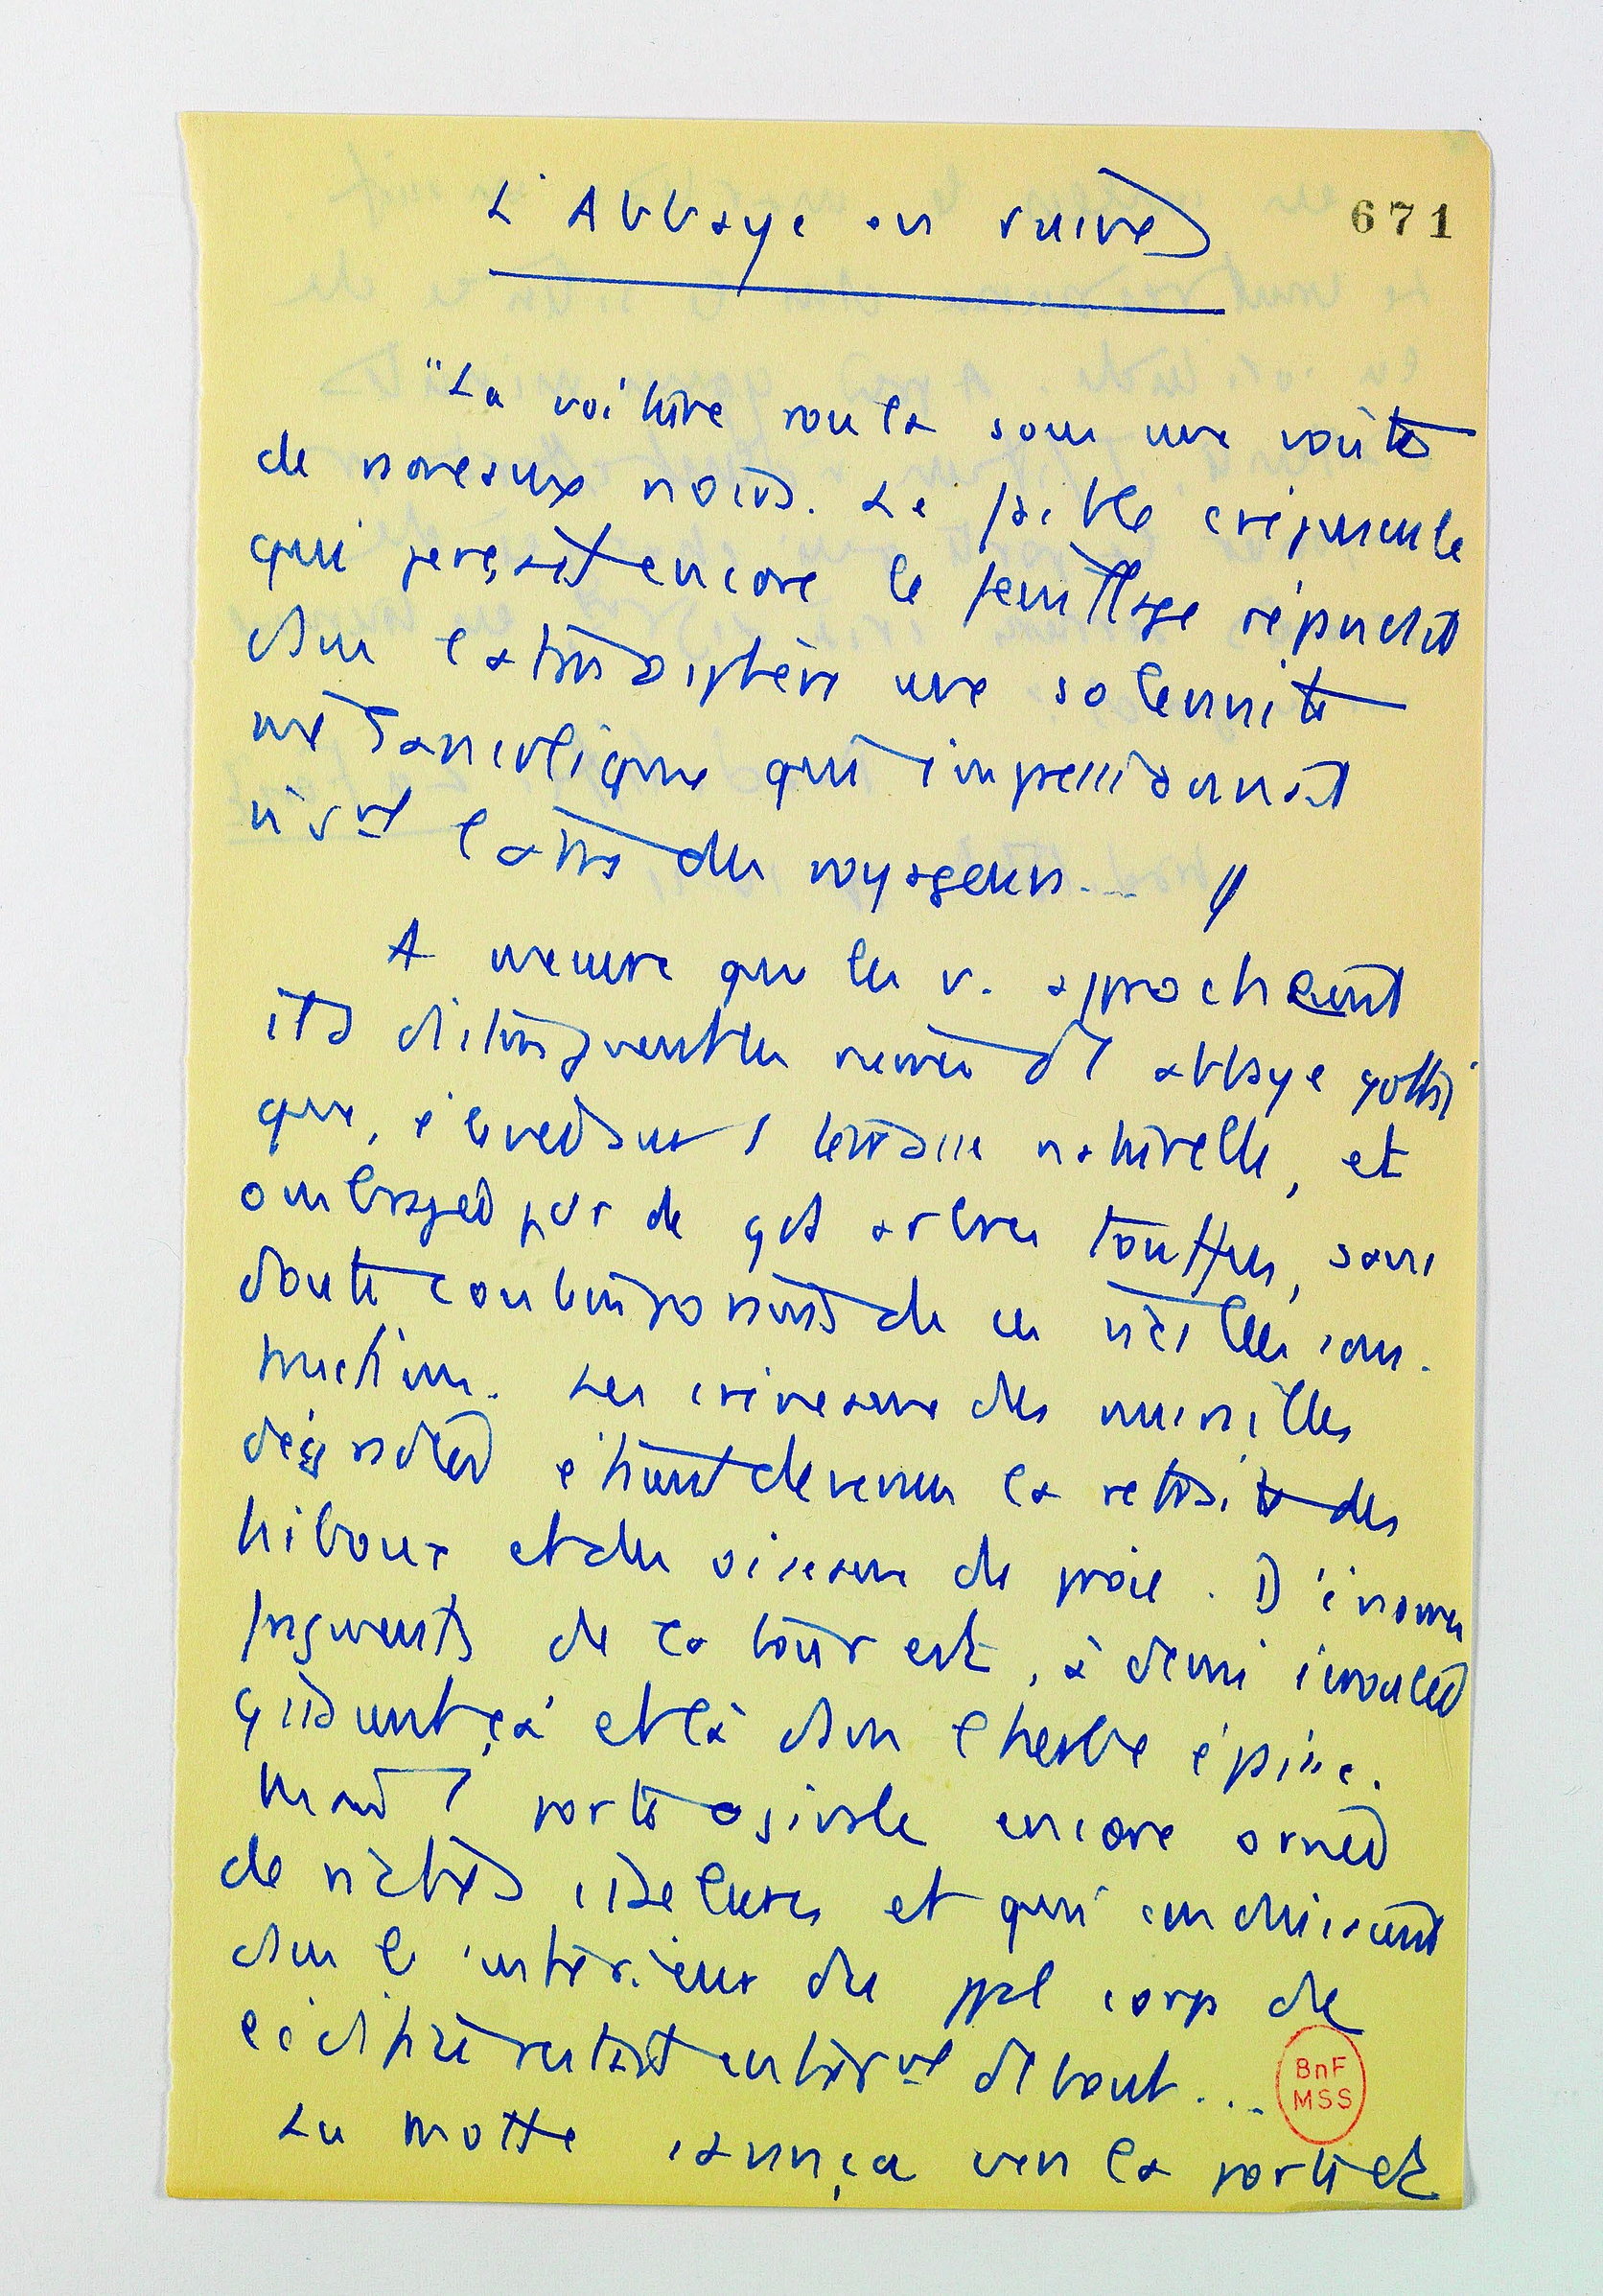 L'Abbaye en ruines
671
"La voiture roula sous une voûte
de rameaux noirs. Le faible crépuscule
qui perçait encore le feuillage répandit
dans l'atmosphère une solennité
mélancolique qui impressionnait
vivt des voyageurs... "
A mesure que les v. approchaient
ils distinguent les ruines d'1 abbaye gothi
que, élevée sur 1 terrasse naturelle, et
ombragée par de gds arbres touffus, sans
doute contemporains de ces vieilles cons-
tructions. Les créneaux des murailles
dégradées étaient devenus la retraite des
hiboux et des oiseaux de proie. D'énormes
fragments de la tour est, à demi écroulée
gisaient çà et là dans l'herbe épaisse.
1 porte ogivale encore ornée
de riches ciselures et qui conduisait
dans l'intérieur du ppal corps de
l'édifice restait entièrmt debout...
BnF
MSS
La Motte s'avança vers la porte et